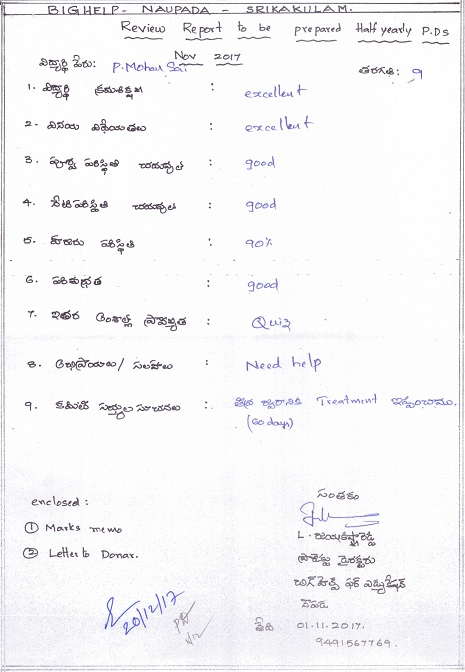 BIGHELP- NAUPADA - SRIKAKULAM.
Review Report to be prepared Half yearly P.Ds
Nov 2017
విద్యార్థి పేరు: P. Mohan Sai తరగతి: 9
1. విద్యార్థి క్రమశిక్షణ : excellent
2. వినయ విధేయతలు : excellent
3. పూర్వ పరిస్థితి చదువుల : good
4. నేటి పరిస్థితి చదువుల : good
5. హాజరు పరిస్థితి : 90%
6. పరిశుభ్రత : good
7. ఇతర అంశాల్లో ప్రావీణ్యత : Quiz
8. అభిప్రాయాలు/ సలహాలు : Need help
9. కమిటీ సభ్యుల సూచనలు : జ్వరానికి Treatment ఇప్పించాము.
(60 days)
enclosed :
సంతకం
① Marks memo
L. రామకృష్ణారెడ్డి
② Letter to Donar.
ప్రాజెక్టు డైరెక్టరు
బిగ్ హెల్ప్ ఫర్ ఎడ్యుకేషన్
నౌపడ
20/12/17
తేది 01.11.2017.
9491567769.